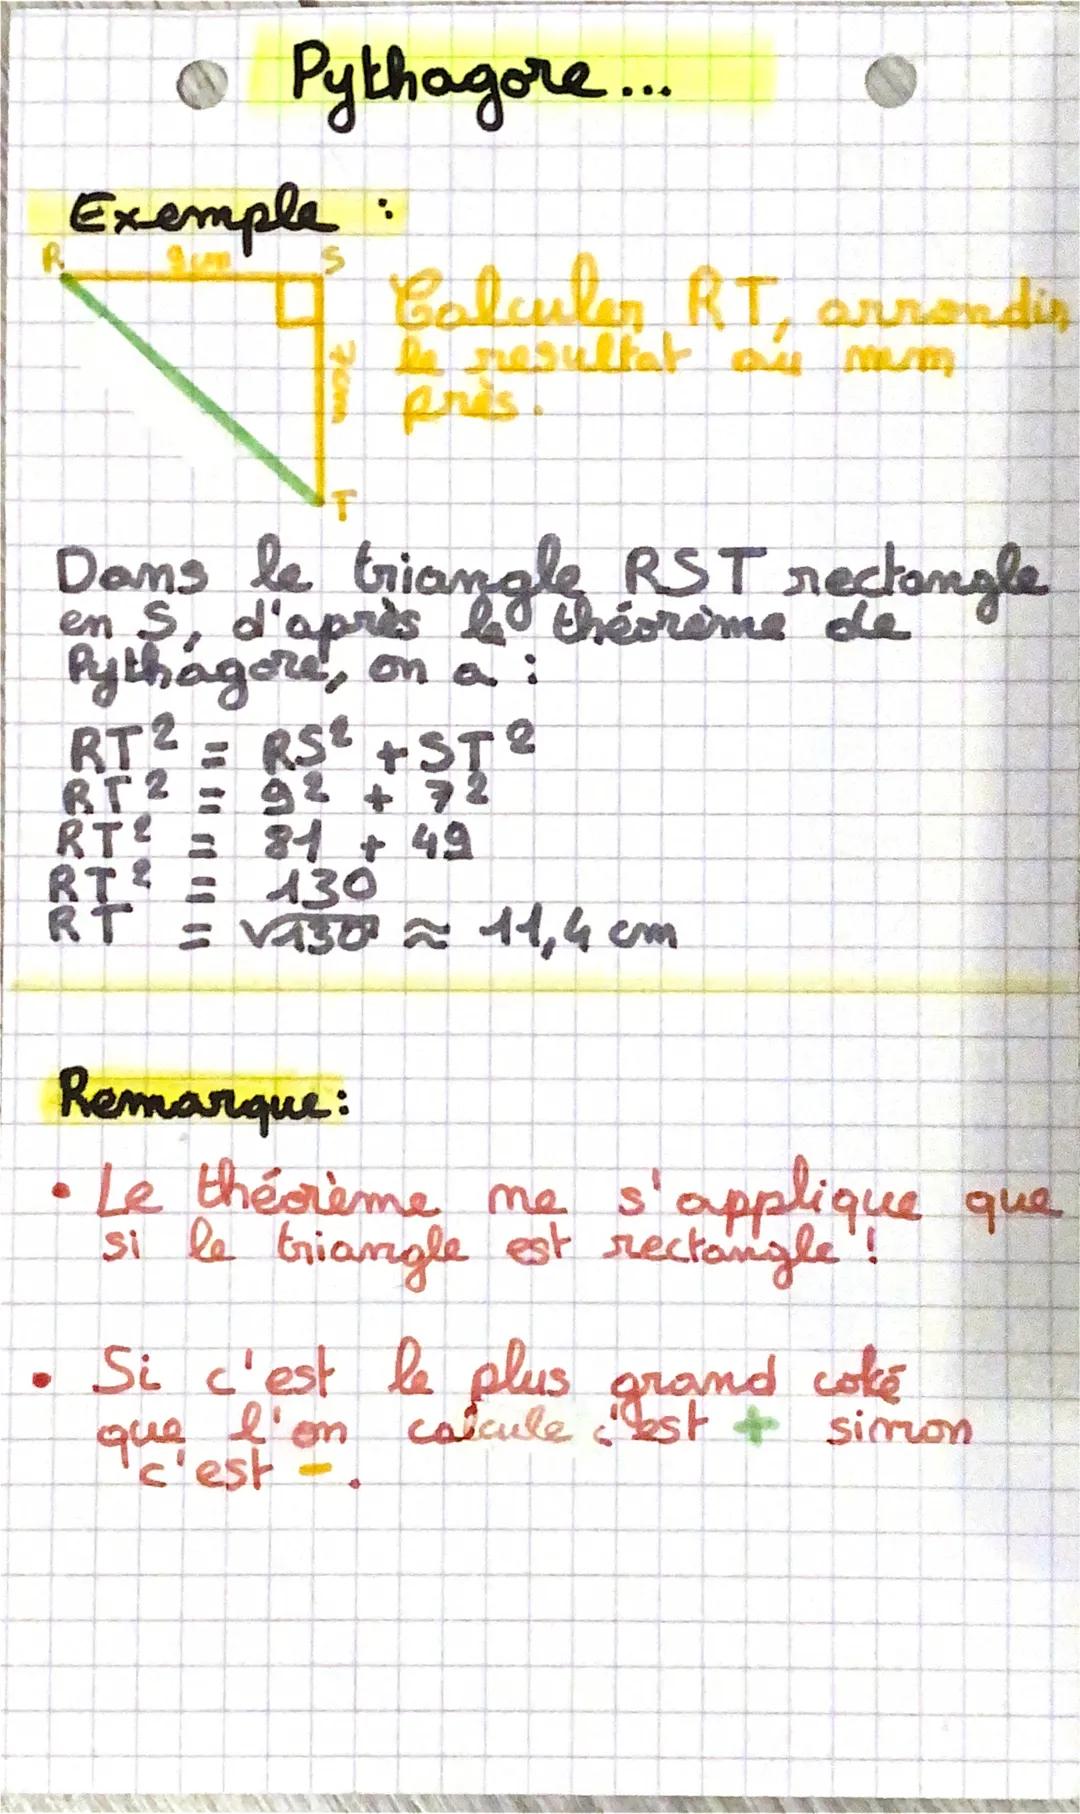 Pythagore...
Exemple :
R 9 cm S
Calculer RT, arrondir
le resultat au mm
près.
7 cm
T
Dans le triangle RST rectangle
en S, d'après le théorème de
Pythagore, on a :
RT² = RS² + ST²
RT² = 9² + 7²
RT² = 81 + 49
RT² = 130
RT = √130 ≈ 11,4 cm
Remarque :
• Le théorème ne s'applique que
si le triangle est rectangle !
• Si c'est le plus grand coté
que l'on calcule c'est + sinon
c'est - .